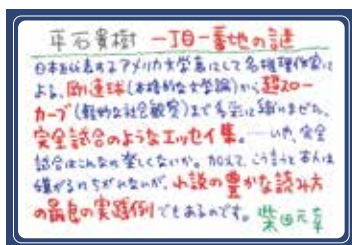 平石貴樹 一丁目一番地の謎
日本を代表するアメリカ文学者にして名推理作家に
よる、剛速球(本格的な文学論)から超スロー
カーブ(軽妙な社会観察)まで多彩に織りまぜた、
完全試合のようなエッセイ集。……いや、完全
試合はこんなに楽しくないか。加えて、こう言うと本人は
嫌がるにちがいないが、小説の豊かな読み方
の最良の実践例でもあるのです。柴田元幸